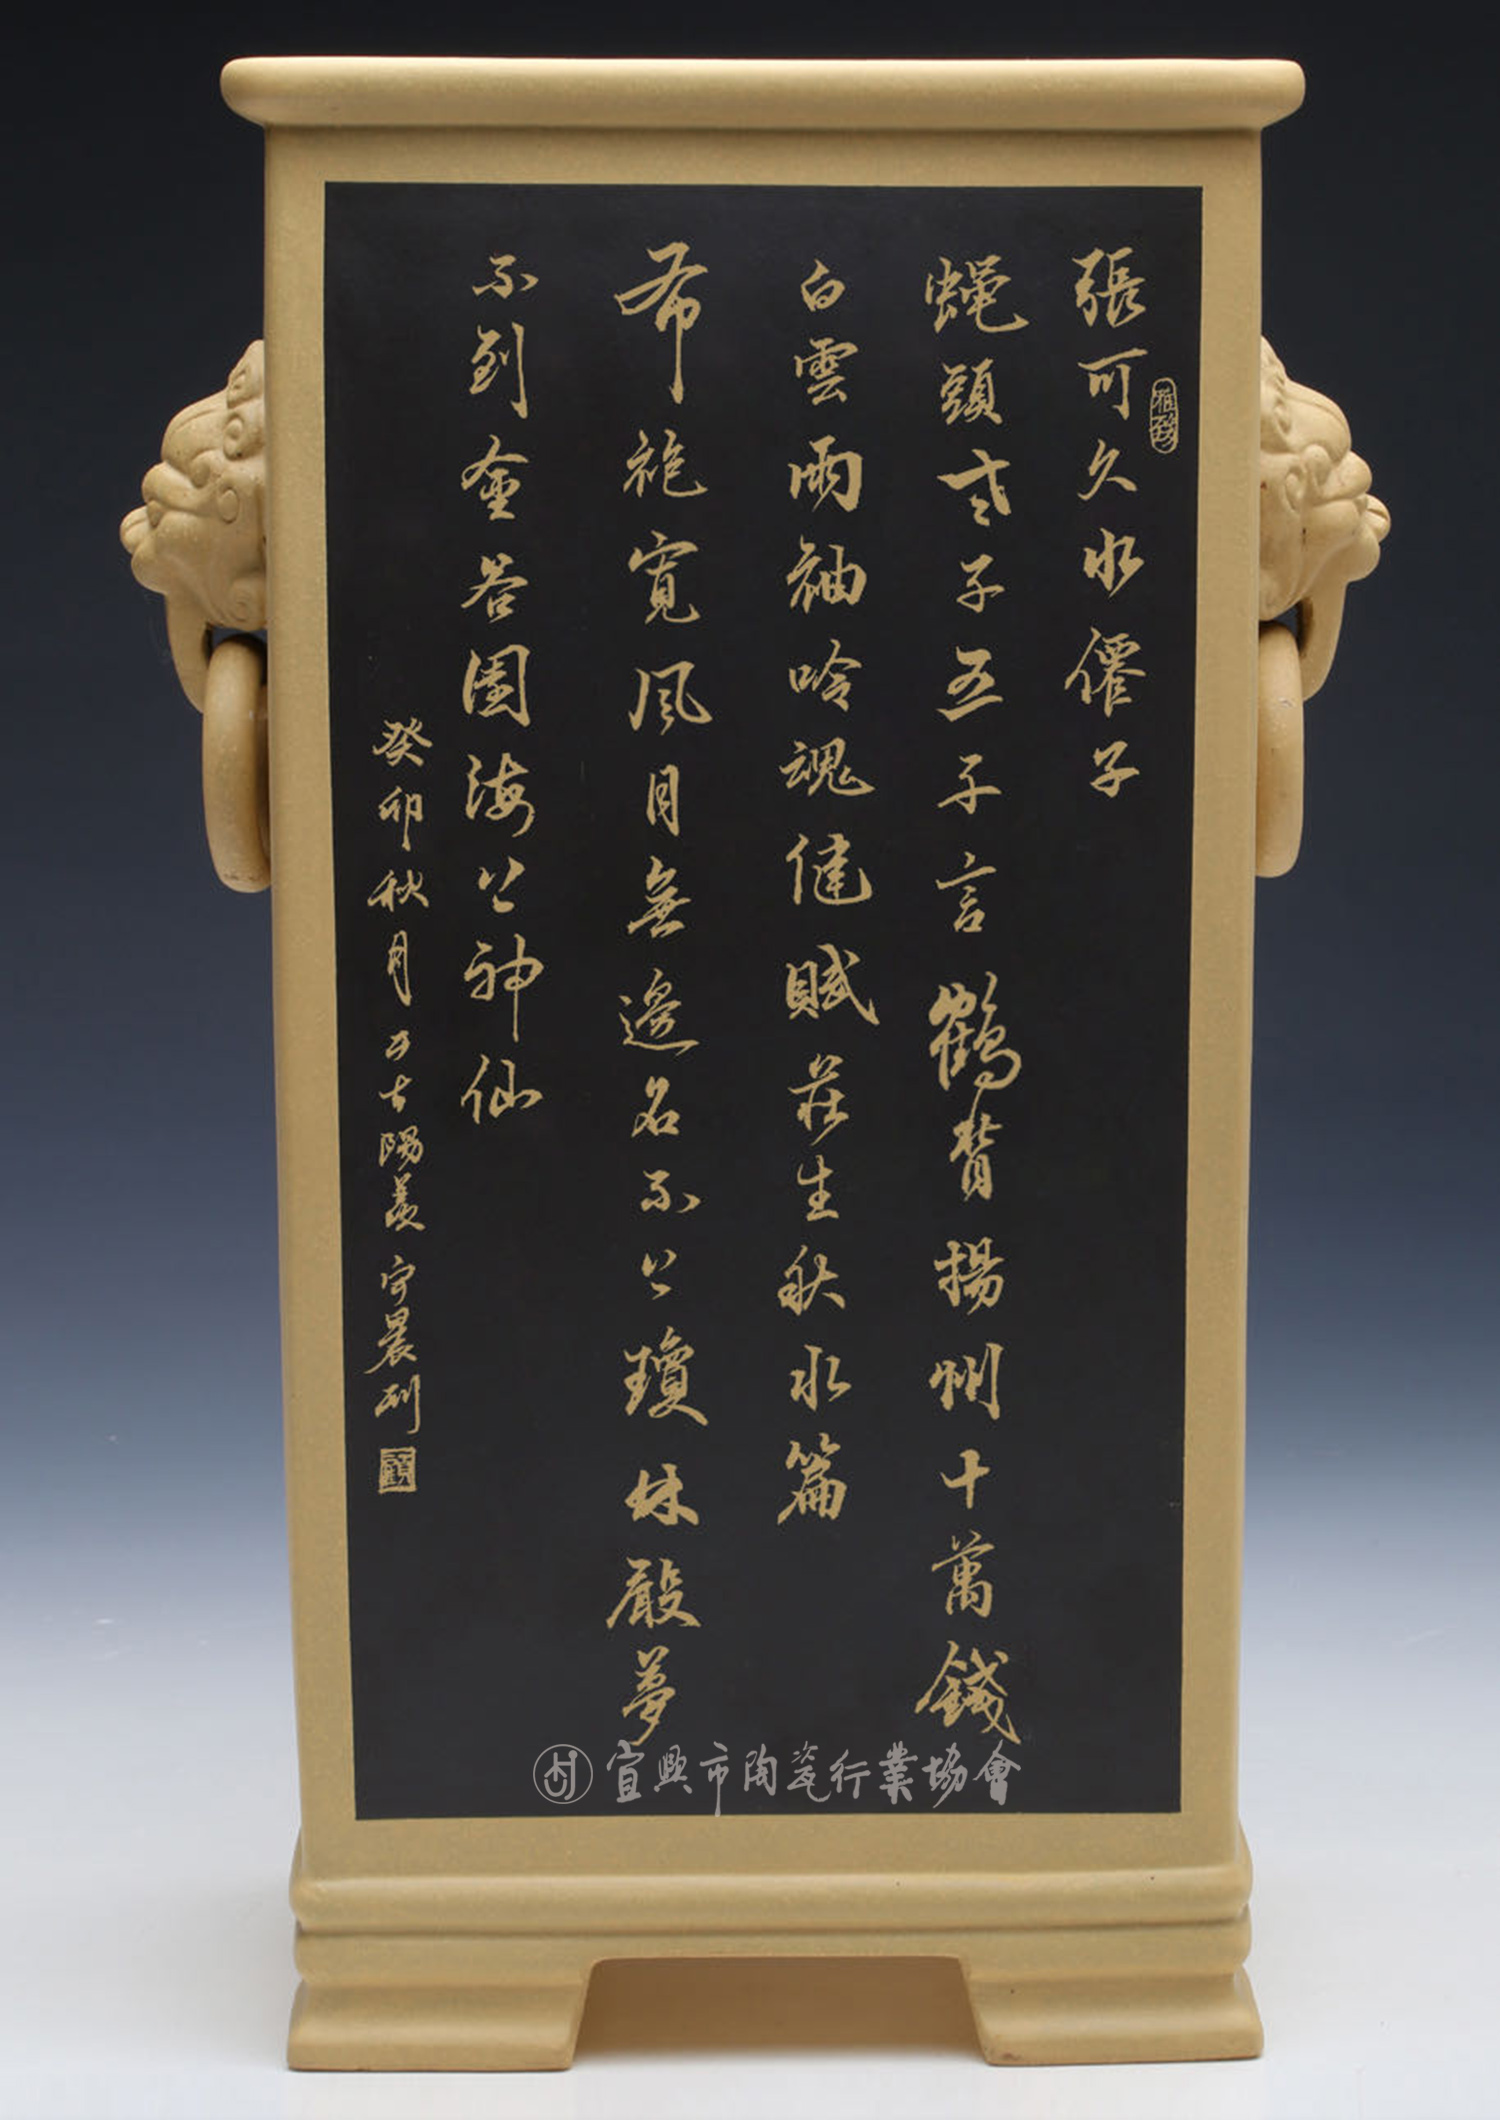 張可久水僊子
雅致
蠅頭老子五千言鶴背揚州十萬錢
白雲兩袖吟魂健賦莊生秋水篇
布袍寬風月無邊名不上瓊林殿夢
不到金谷園海上神仙
癸卯秋月於古陽羨宇晨刻
顧
宜興市陶瓷行業協會